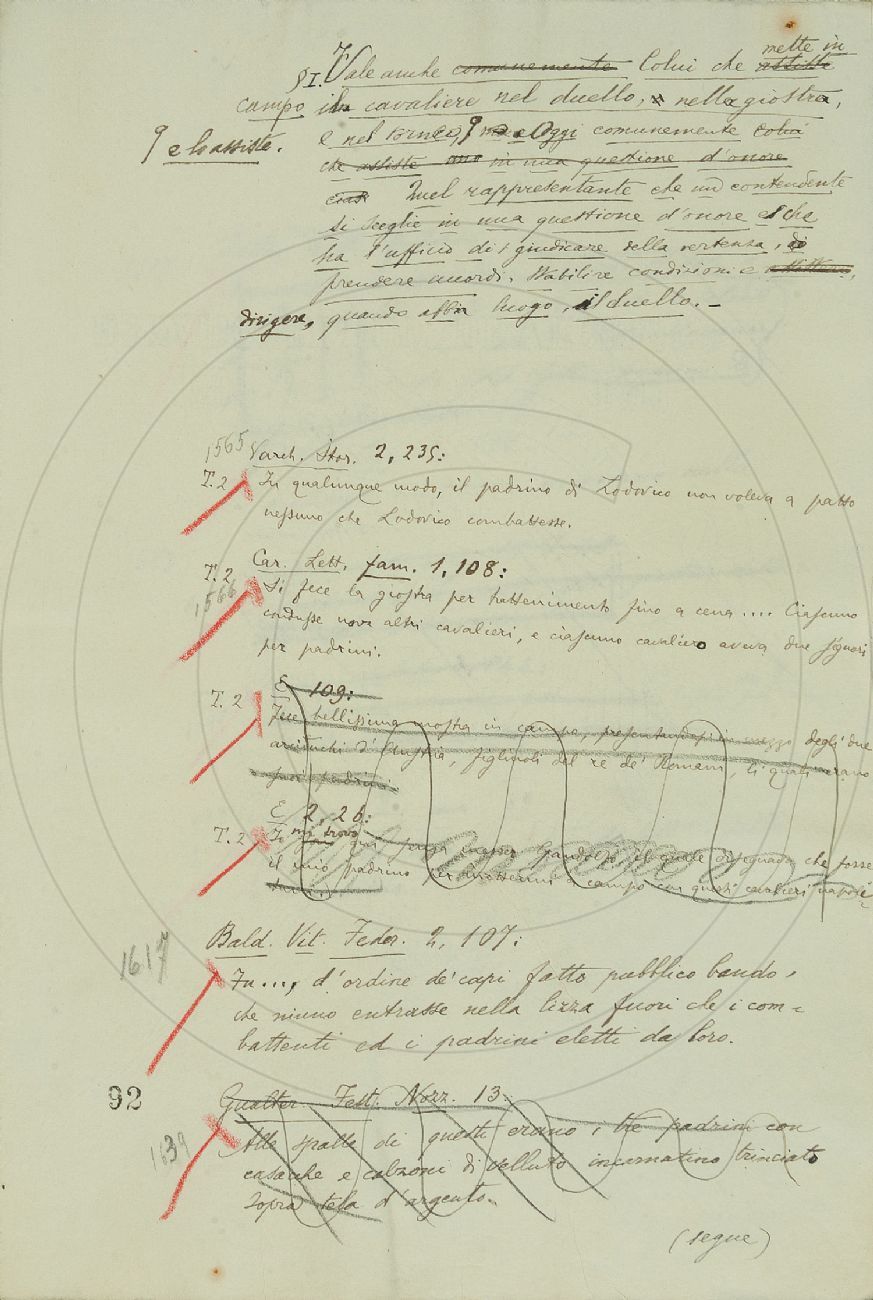 § I. Vale anche comunemente Colui che mette in assiste
campo il cavaliere nel duello, nella giostra,
e nel torneo, e Oggi comunemente colui
e lo assiste.
che assiste uno in una questione d'onore
Quel rappresentante che un contendente
si sceglie in una questione d'onore e che
ha l'ufficio di giudicare della vertenza, di
prendere accordi, stabilire condizioni e
dirigere, quando abbia luogo, il duello. –
1565 Varch. Stor. 2, 235:
T. 2 In qualunque modo, il padrino di Lodovico non voleva a patto
nessuno che Lodovico combattesse.
T. 2 Car. Lett. fam. 1, 108:
1566 Si fece la giostra per trattenimento fino a cena .... Ciascuno
condusse nove altri cavalieri, e ciascuno cavaliero aveva due signori
per padrini.
E 109:
T. 2 Fece bellissima mostra in campo, presentandosi in mezzo degli due
arciduchi d'Austria, figliuoli del re de' Romani, li quali erano
suoi padrini.
E 2, 26:
T. 2 Io mi trovo qui senza messer Gandolfo il quale disegnava che fosse
il mio padrino per mettermi a campo con questi cavalieri napole-
tani.
Bald. Vit. Feder. 2, 107:
1617 Fu ..., d'ordine de' capi fatto pubblico bando,
che niuno entrasse nella lizza fuori che i com-
battenti ed i padrini eletti da loro.
92
Gualter. Fest. Nozz. 13.
1639 Alle spalle di questi erano, tre padrini con
casacche e calzoni di velluto incarnatino trinciato
sopra tela d'argento.
(segue)